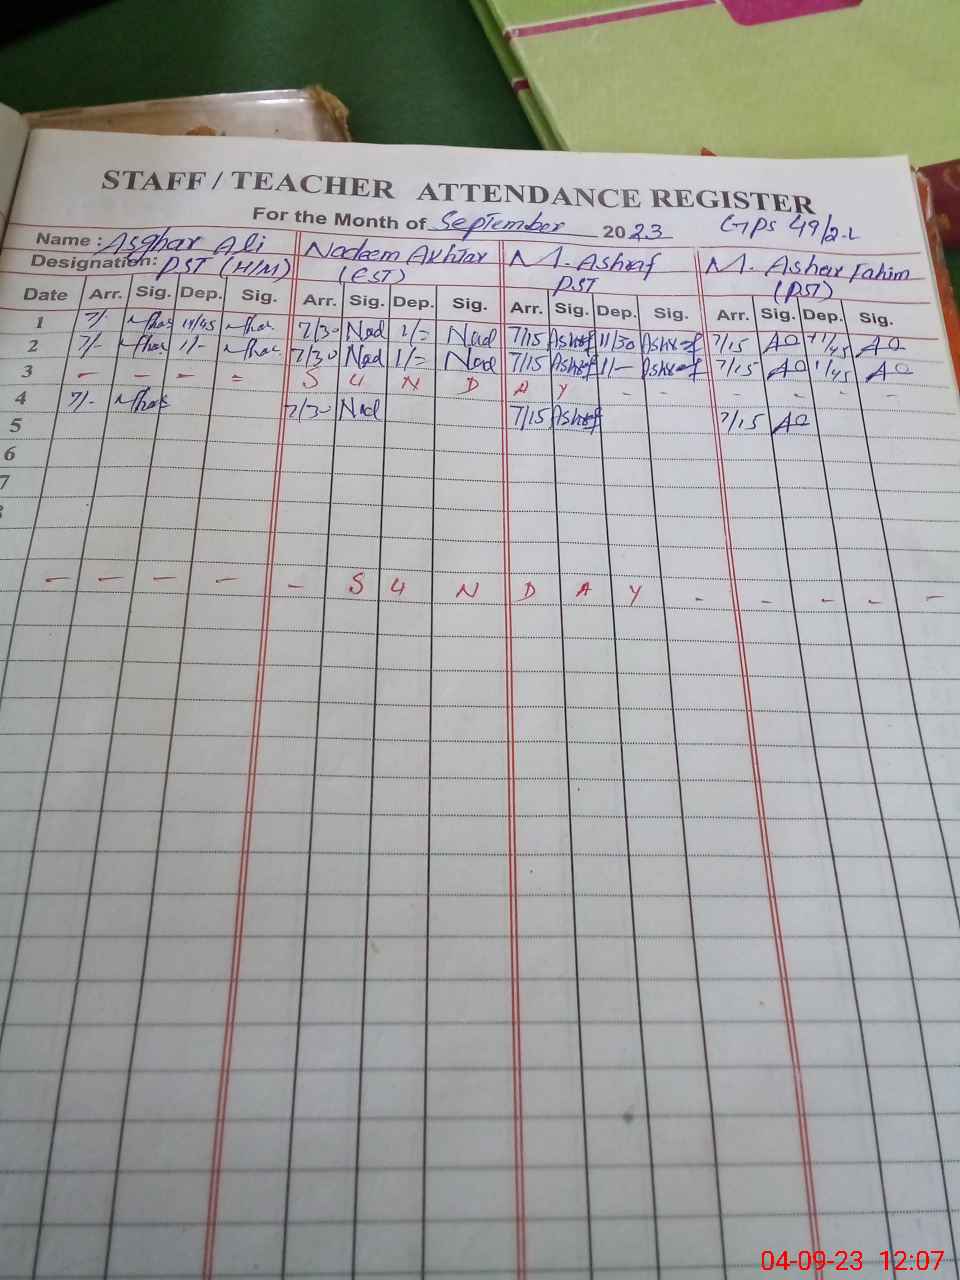 STAFF / TEACHER ATTENDANCE REGISTER
For the Month of September 2023 GPS 49/2-L
Name: Asghar Ali Nadeem Akhtar M. Ashraf M. Ashar Fahim
Designation: PST (H/M) (EST) PST (PST)
Date Arr. Sig. Dep. Sig. Arr. Sig. Dep. Sig. Arr. Sig. Dep. Sig. Arr. Sig. Dep. Sig.
1 7/- 11/45 7/30 Nad 1/= Nad 7/15 Ashraf 11/30 Ashraf 7/15 11/45
2 7/- 11/- 7/30 Nad 1/= Nad 7/15 Ashraf 11/- Ashraf 7/15 11/45
3 - - - = S U N D A Y - - - - - -
4 7/- 7/30 Nad 7/15 Ashraf 7/15
5
6
7
- - - - - S U N D A Y - - - - -
04-09-23 12:07